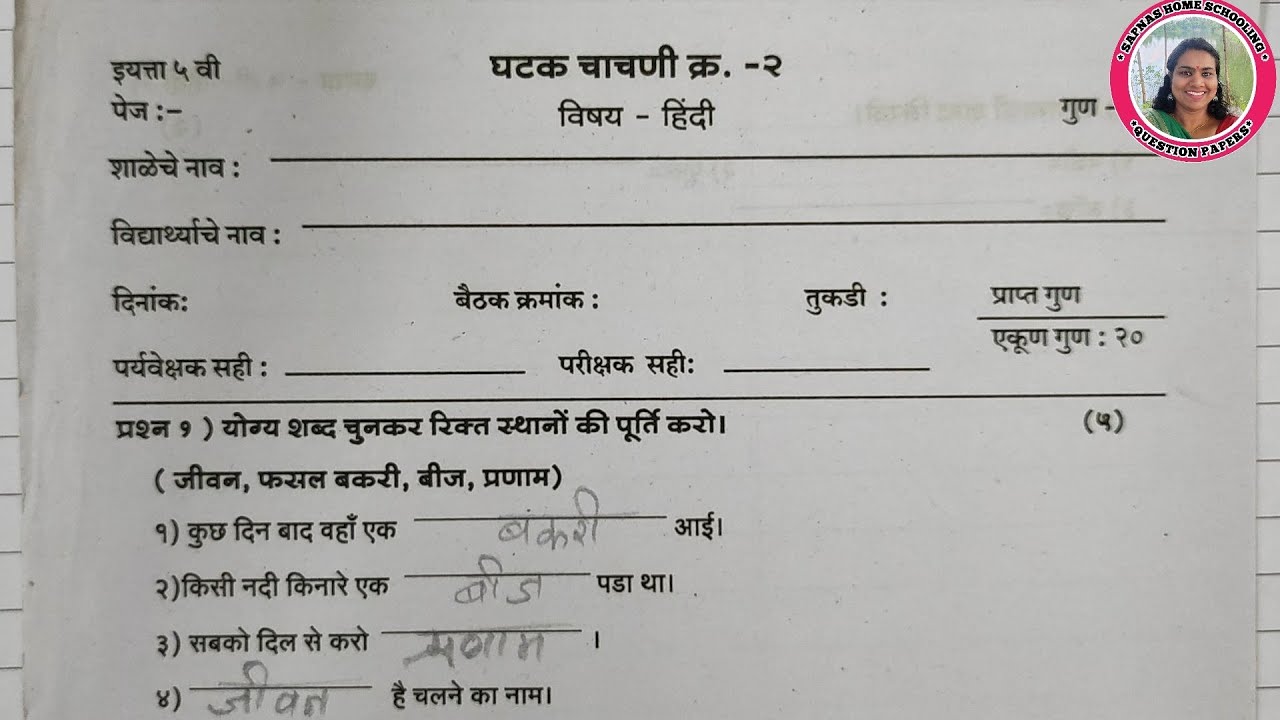 SAPNAS HOME SCHOOLING
*QUESTION PAPERS*
इयत्ता ५ वी घटक चाचणी क्र. -२
पेज :- विषय - हिंदी गुण -
शाळेचे नाव :
विद्यार्थ्याचे नाव :
दिनांक: बैठक क्रमांक : तुकडी : प्राप्त गुण
एकूण गुण : २०
पर्यवेक्षक सही : परीक्षक सही:
प्रश्न १ ) योग्य शब्द चुनकर रिक्त स्थानों की पूर्ति करो। (५)
( जीवन, फसल बकरी, बीज, प्रणाम)
१) कुछ दिन बाद वहाँ एक बंकरी आई।
२)किसी नदी किनारे एक बीज पडा था।
३) सबको दिल से करो प्रणाम ।
४) जीवन है चलने का नाम।